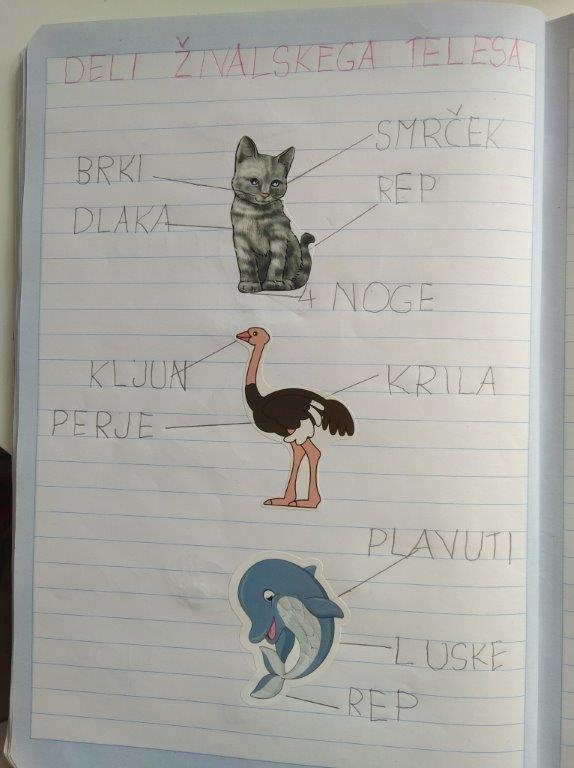 DELI ŽIVALSKEGA TELESA
SMRČEK
BRKI
REP
DLAKA
4 NOGE
KLJUN
KRILA
PERJE
PLAVUTI
LUSKE
REP